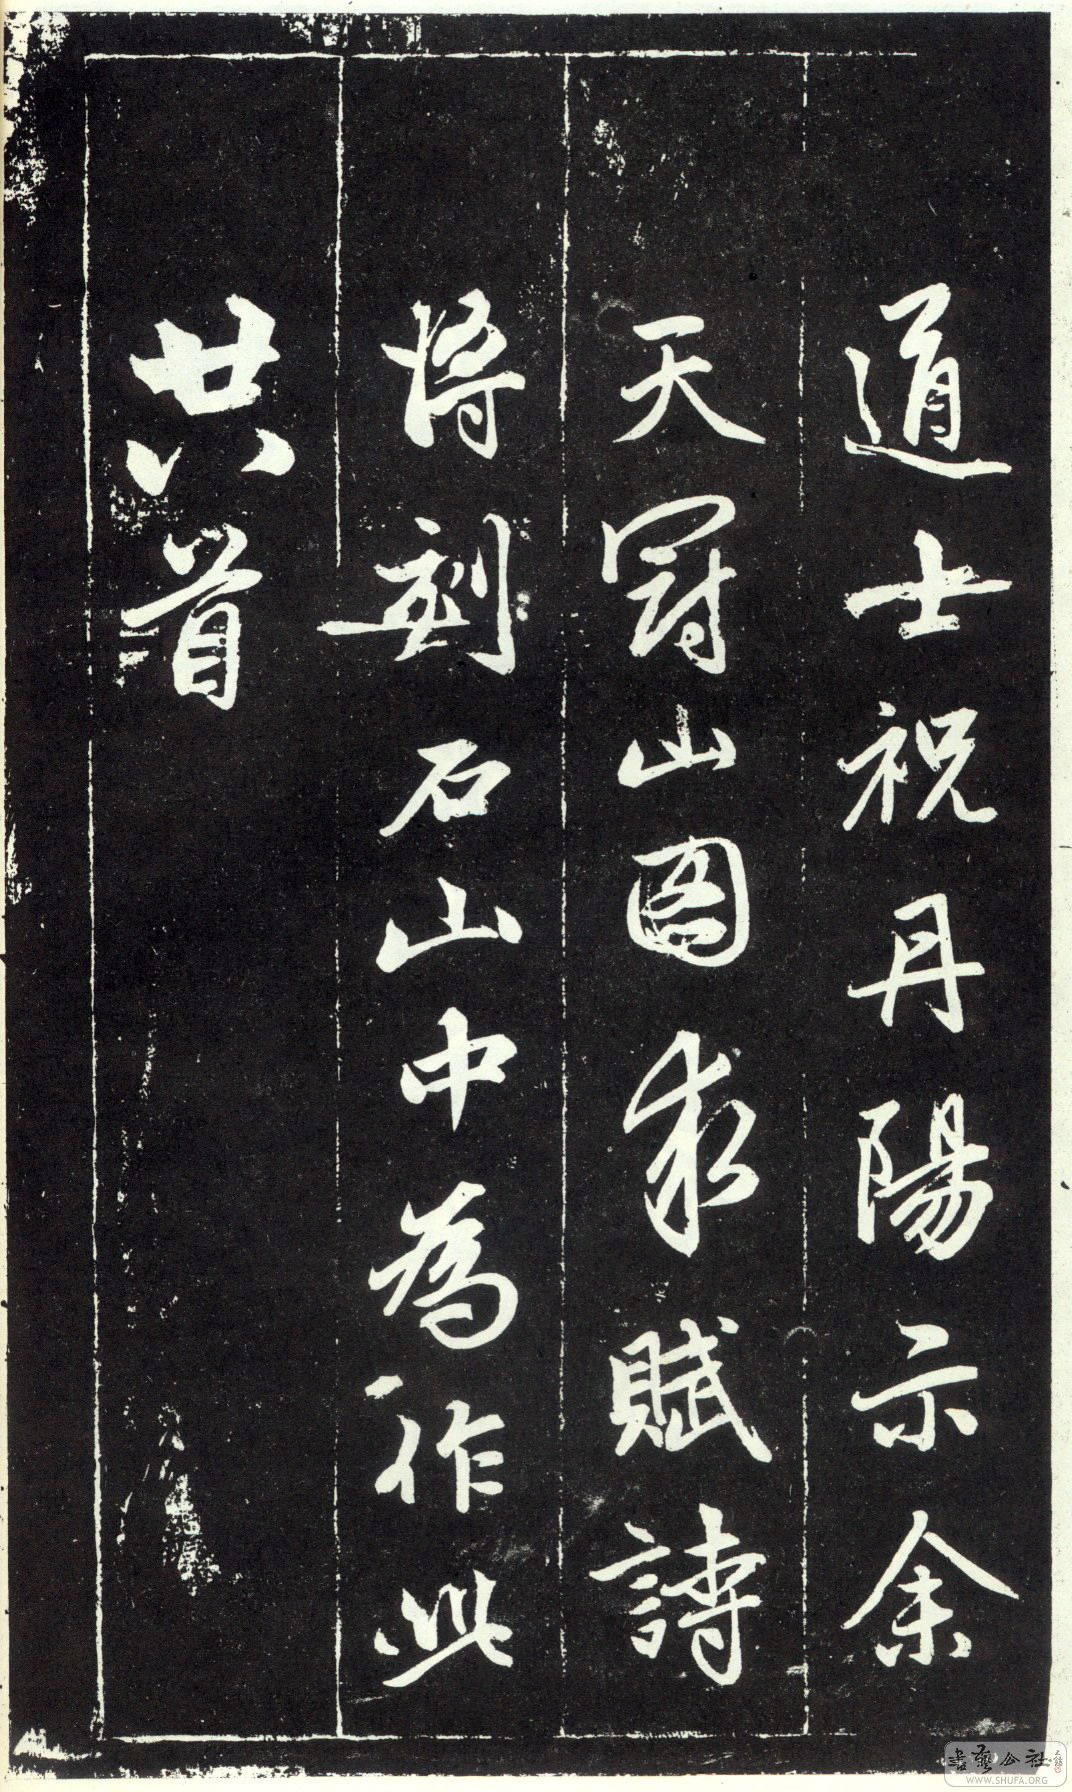 道士祝丹陽示余
天冠山圖求賦詩
將刻石山中為作此
廿八首
書藝公社
WWW.SHUFA.ORG